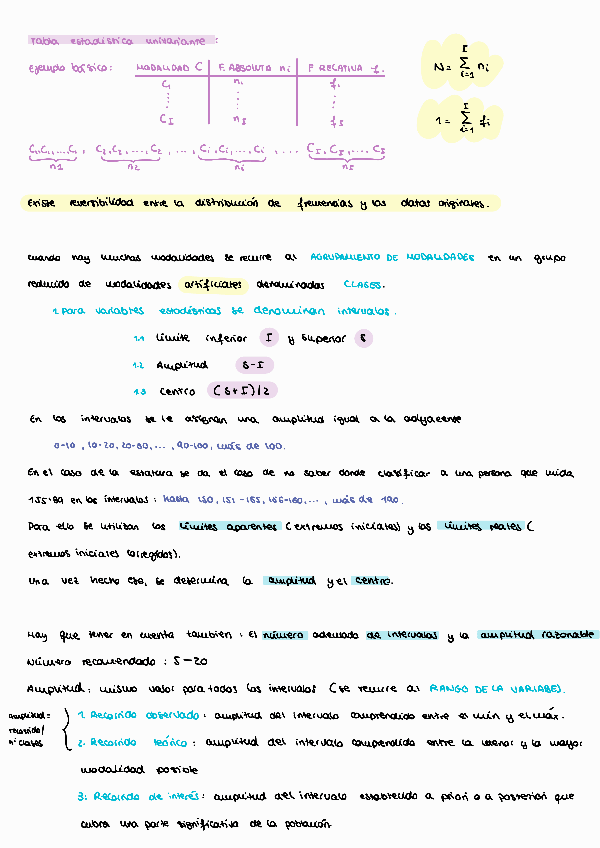 Tabla estadística univariante :
Ejemplo básico: MODALIDAD C F. ABSOLUTA ni F RELATIVA f.
C1 n1 f1
⋮ ⋮ ⋮
CI nI fI
N = Σ ni (i=1, I)
1 = Σ fi (i=1, I)
C1,C1,...,C1 , C2,C2,...,C2 , ... , Ci,Ci,...,Ci , .... CI,CI,...,CI
n1 n2 ni nI
Existe reversibilidad entre la distribución de frecuencias y los datos originales.
cuando hay muchas modalidades se recurre al AGRUPAMIENTO DE MODALIDADES en un grupo
reducido de modalidades artificiales denominadas CLASES.
1. Para variables estadísticas se denominan intervalos.
1.1 Límite inferior I y superior S
1.2 Amplitud S-I
1.3 Centro (S+I)/2
En los intervalos se le asignan una amplitud igual a la adyacente
0-10 , 10-20, 20-30, ... , 90-100, más de 100.
En el caso de la estatura se da el caso de no saber donde clasificar a una persona que mida
155'89 en los intervalos : hasta 150, 151-155, 156-160, ... , más de 190.
Para ello se utilizan los límites aparentes ( extremos iniciales) y los límites reales (
extremos iniciales corregidos).
Una vez hecho eso, se determina la amplitud y el centro.
Hay que tener en cuenta también : El número adecuado de intervalos y la amplitud razonable
Número recomendado : 5-20
Amplitud: mismo valor para todos los intervalos ( se recurre al RANGO DE LA VARIABLE).
amplitud= recorrido/ nº clases
1. Recorrido observado : amplitud del intervalo comprendido entre el mín y el máx.
2. Recorrido teórico : amplitud del intervalo comprendido entre la menor y la mayor
modalidad posible
3. Recorrido de interés: amplitud del intervalo establecido a priori o a posteriori que
cubra una parte significativa de la población